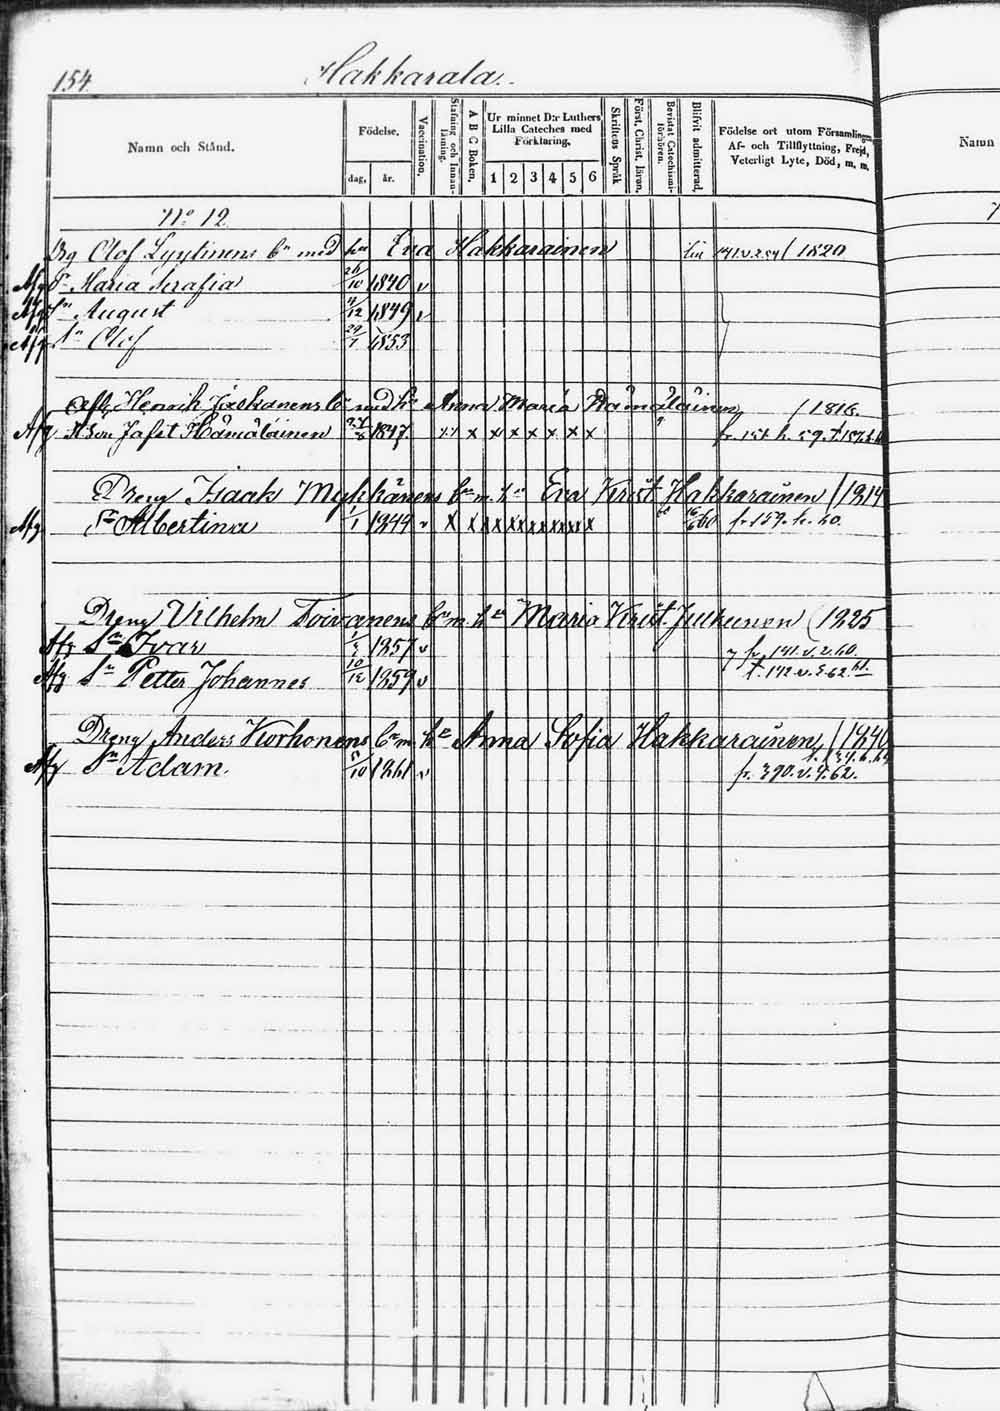 154.
Hakkarala.
Namn och Stånd.
Födelse.
dag, år.
Vaccination.
Stafning och Innanläsning.
A B C Boken.
Ur minnet D:r Luthers Lilla Cateches med Förklaring.
1 2 3 4 5 6
Skriftens Språk
Först. Christ. läran.
Bevistat Catechismiförhören.
Blifvit admitterad.
Födelse ort utom Församlingen, Af- och Tillflyttning, Frejd, Veterligt Lyte, Död, m. m.
Namn
N:o 12.
Olof Lyytinens med Eva Hakkarainen 1820
Afg Maria Serafia 26/10 1840 v
Afg Sn August 4/12 1849 v
Afg Sn Olof 29/7 1853
Henrik Jäskänens med Anna Maria Hämäläinen / 1816.
Afg Son Jafet Hämäläinen 1847. x x x x x x x x
Dreng Isaak Mykkänens m. Eva Krist. Hakkarainen / 1814
Afg Albertina 1/1 1844 v x x x x x x x x fr. 159. h. 60.
Dreng Vilhelm Toivanens m. Maria Krist. Julkunen / 1825
Afg Sn Ivar 1857 v fr. 141. v. 2. 60.
Afg Sn Petter Johannes 10/12 1859 v
Dreng Anders Korhonens m. Anna Sofia Hakkarainen / 1840
Afg Sn Adam. 1861 v fr. 390. v. 9. 62.